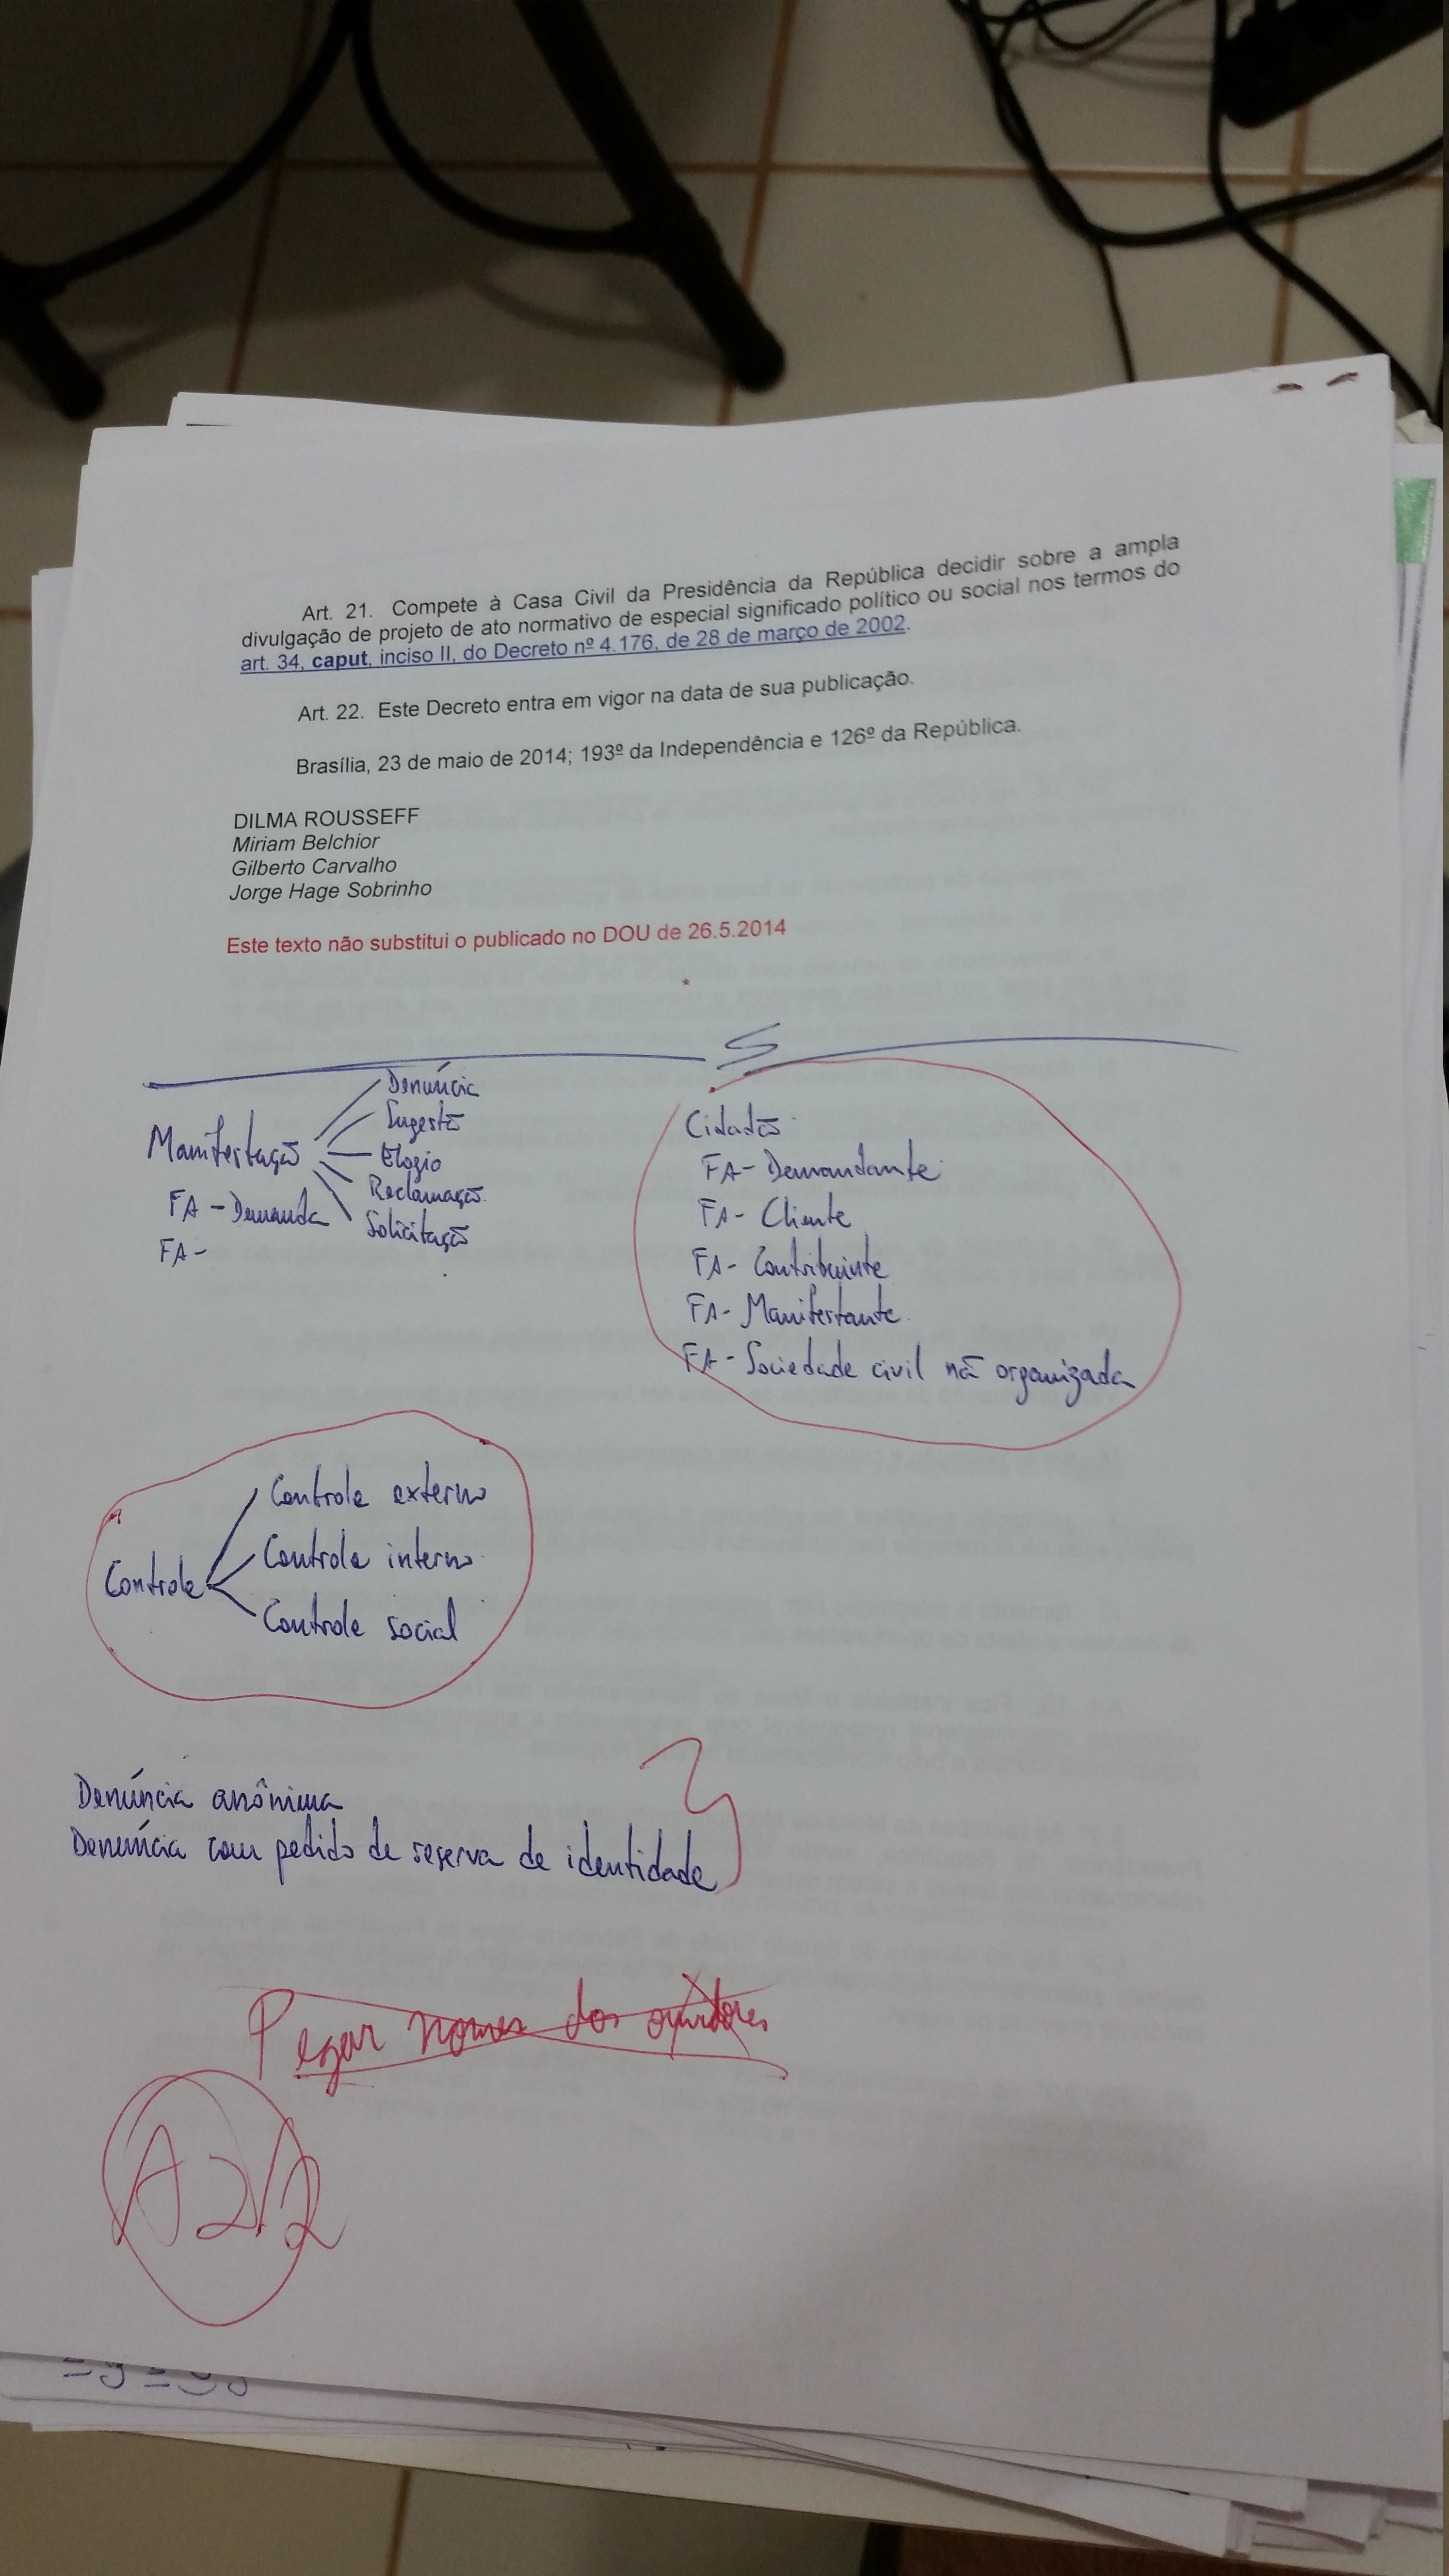 Art. 21. Compete à Casa Civil da Presidência da República decidir sobre a ampla
divulgação de projeto de ato normativo de especial significado político ou social nos termos do
art. 34, caput, inciso II, do Decreto nº 4.176, de 28 de março de 2002.
Art. 22. Este Decreto entra em vigor na data de sua publicação.
Brasília, 23 de maio de 2014; 193º da Independência e 126º da República.
DILMA ROUSSEFF
Miriam Belchior
Gilberto Carvalho
Jorge Hage Sobrinho
Este texto não substitui o publicado no DOU de 26.5.2014
Manifestação
FA - Demanda
FA -
Denúncia
Sugestão
Elogio
Reclamação
Solicitação
Cidadão
FA - Demandante
FA - Cliente
FA - Contribuinte
FA - Manifestante
FA - Sociedade civil não organizada
Controle
Controle externo
Controle interno
Controle social
Denúncia anônima
Denúncia com pedido de reserva de identidade
Pegar nomes dos ouvidores